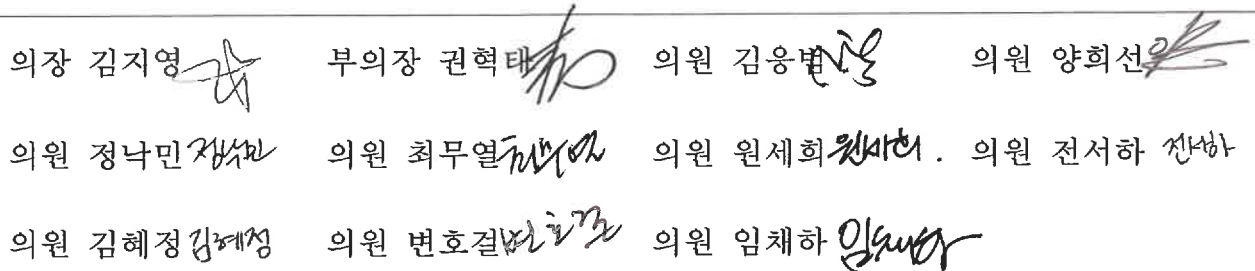 의장 김지영 부의장 권혁태 의원 김응범 의원 양희선
의원 정낙민 정낙민 의원 최무열 의원 원세희 원세희. 의원 전서하 전서하
의원 김혜정 김혜정 의원 변호걸 변호걸 의원 임채하 임채하